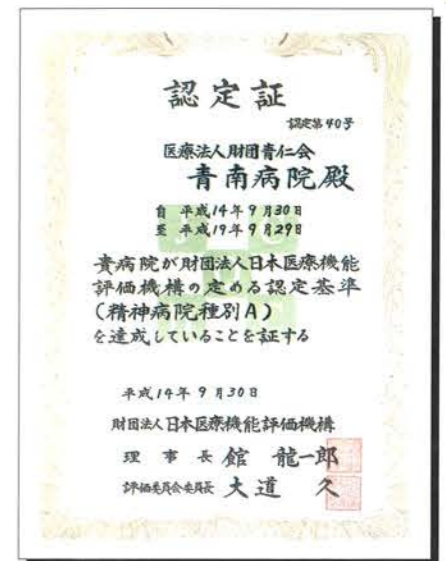 認定証
認定第40号
医療法人財団青仁会
青南病院殿
自 平成14年9月30日
至 平成19年9月29日
貴病院が財団法人日本医療機能
評価機構の定める認定基準
(精神病院種別A)
を達成していることを証する
平成14年9月30日
財団法人日本医療機能評価機構
理事長 舘 龍一郎
評価委員会委員長 大道 久